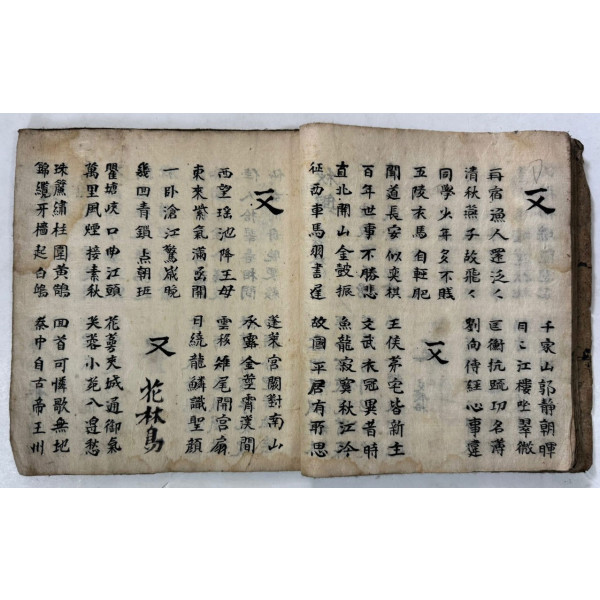 又
千家山郭靜朝暉
日々江樓坐翠微
再宿漁人還泛々
清秋燕子故飛々
匡衡抗疏功名薄
劉向傳経心事違
同學少年多不賤
五陵衣馬自輕肥
又
聞道長安似奕棋
百年世事不勝悲
王侯茅宅皆新主
文武衣冠異昔時
直北關山金鼓振
征西車馬羽書遲
魚龍寂寞秋江冷
故國平居有所思
又
蓬萊宮闕對南山
承露金莖霄漢間
西望瑤池降王母
東來紫氣滿函關
雲移雉尾開宮扇
日繞龍鱗識聖顏
一卧滄江驚歲晚
幾回青鎖点朝班
又
花林鳥
瞿塘峽口曲江頭
萬里風煙接素秋
花萼夾城通御氣
芙蓉小苑入邊愁
珠簾繡柱圍黃鶴
錦纜牙檣起白鷗
回首可憐歌無地
秦中自古帝王州